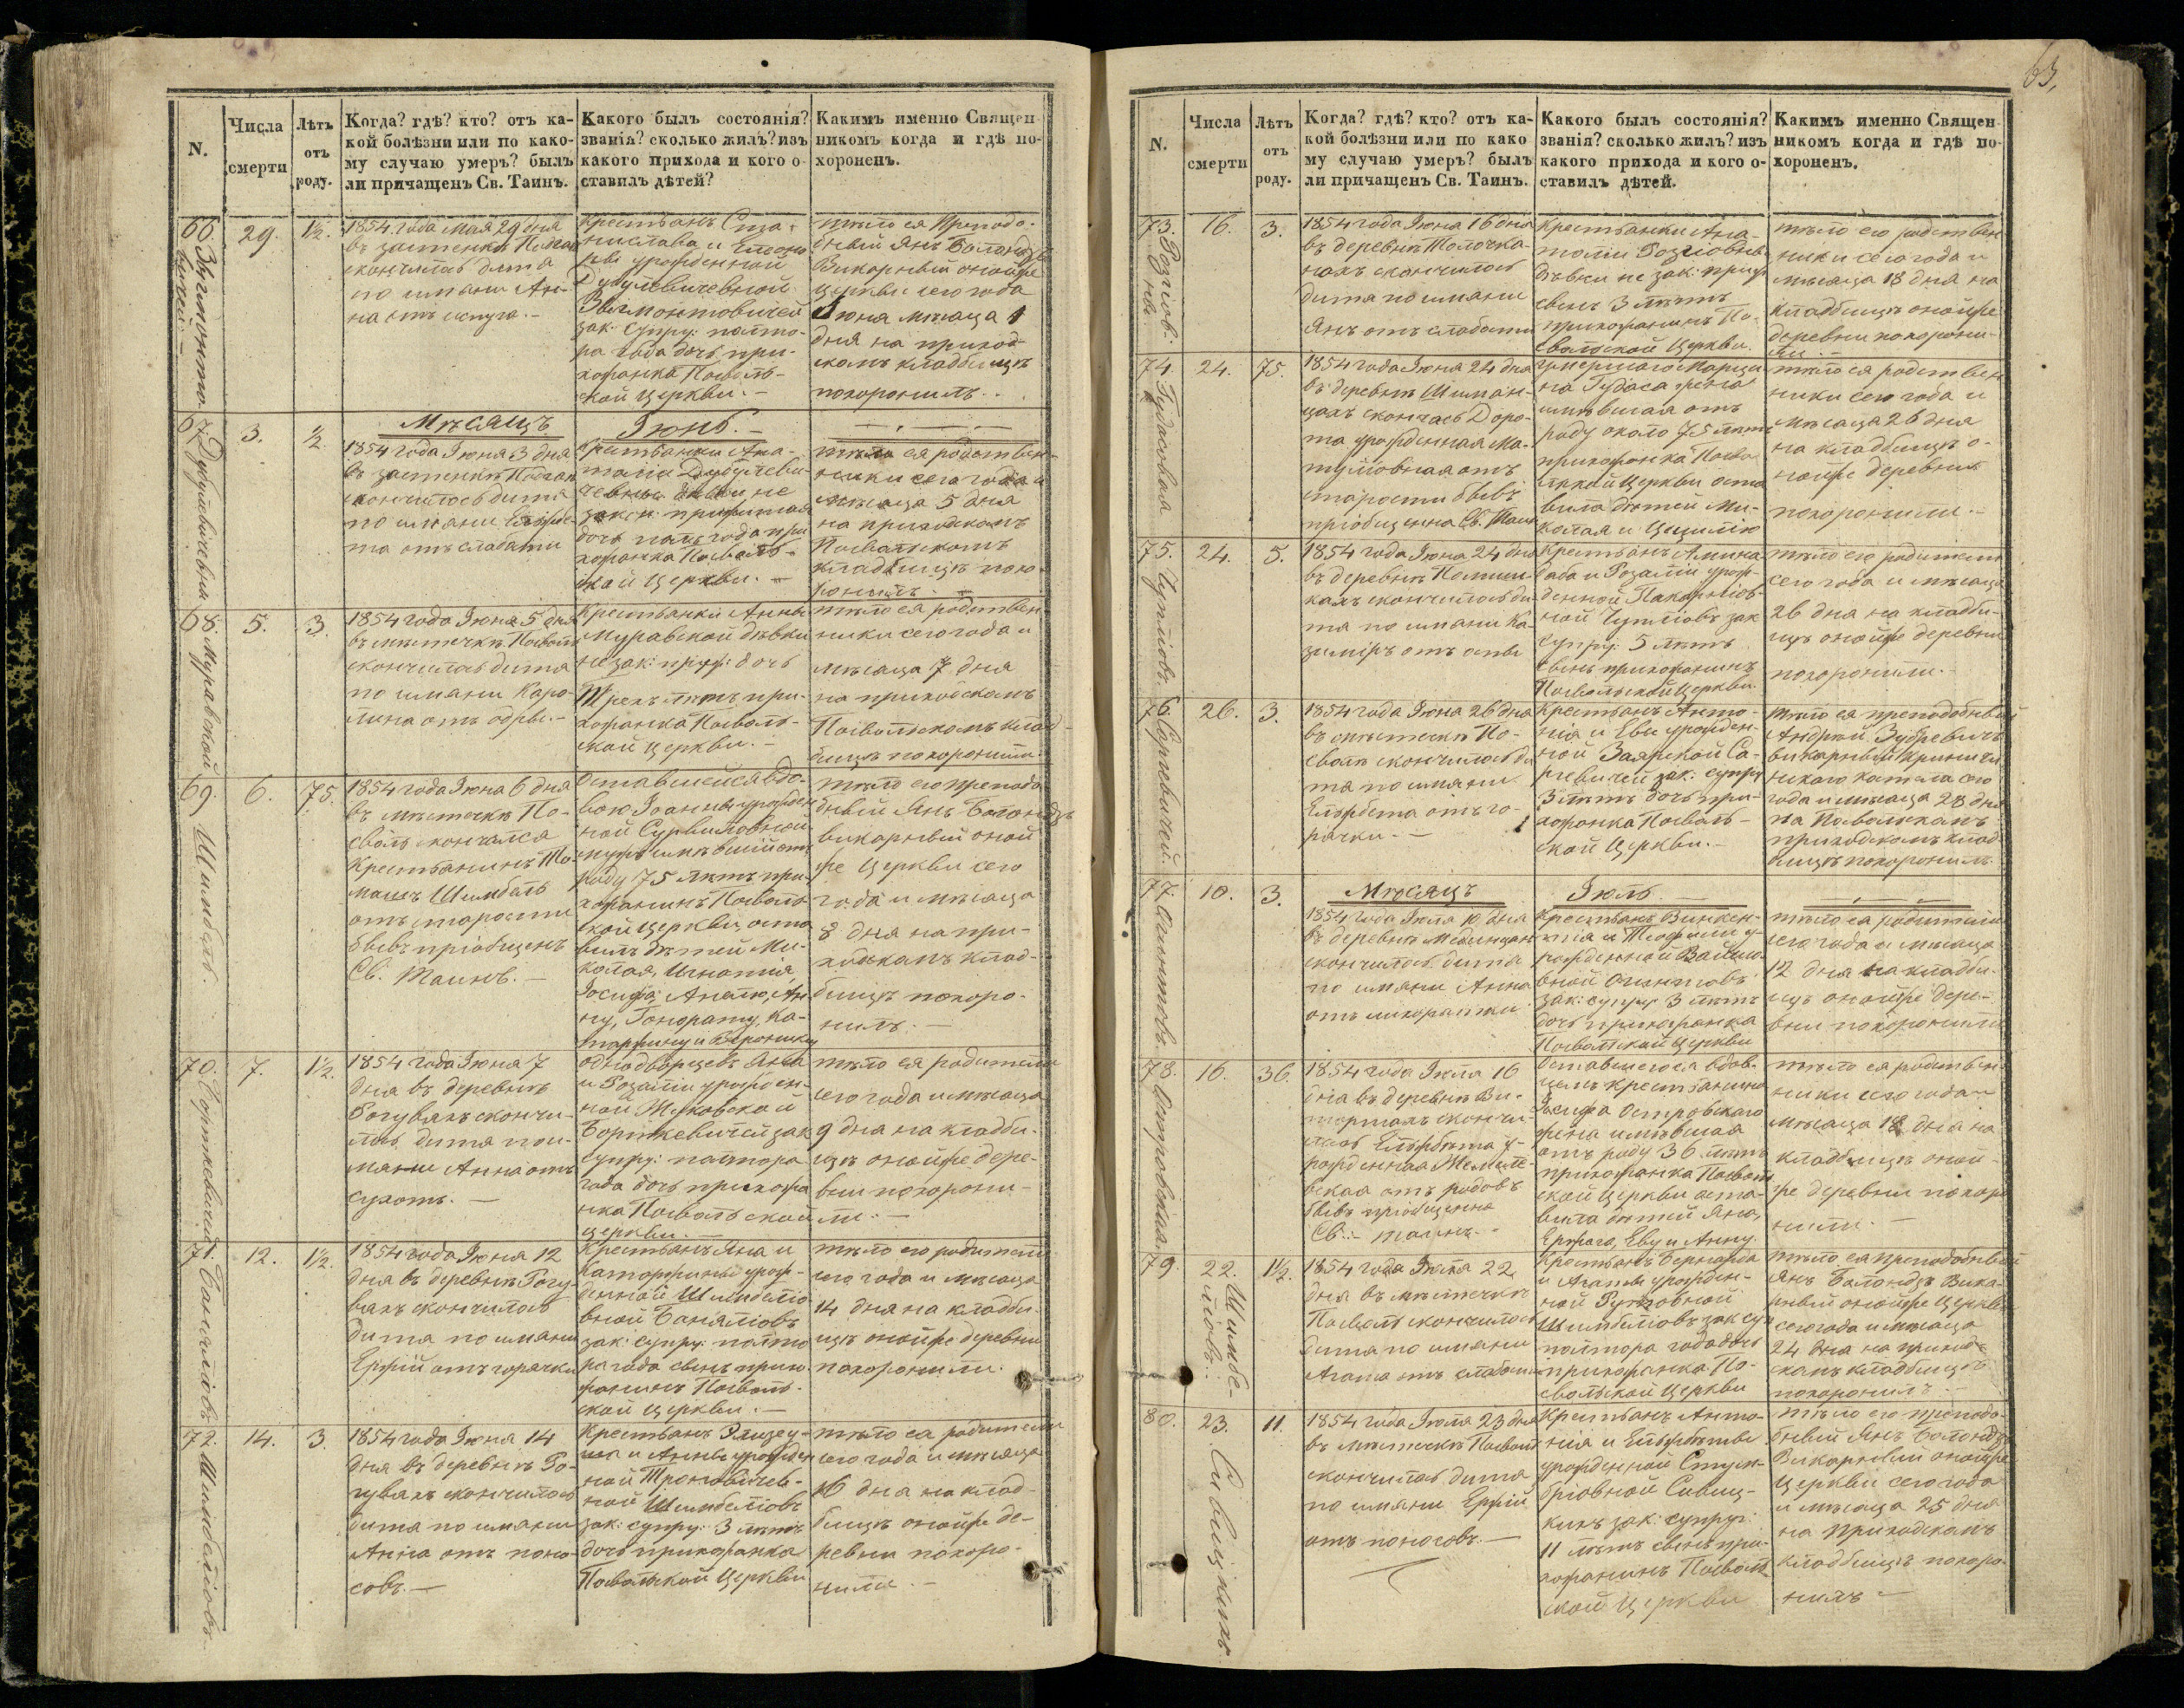 63,
N.
Числа
смерти
Лѣтъ
отъ
роду.
Когда? гдѣ? кто? отъ ка-
кой болѣзни или по како-
му случаю умеръ? былъ
ли причащенъ Св. Таинъ.
Какого былъ состоянія?
званія? сколько жилъ? изъ
какого прихода и кого о-
ставилъ дѣтей?
Какимъ именно Священ-
никомъ когда и гдѣ по-
хороненъ.
66.
29.
1½.
1854 года Мая 29 дня
въ застенкѣ
скончилось дитя
по имяни Ан-
на отъ испуга.-
Крестьянъ Ста-
нислава и
урожденной
зак: супру: полто-
ра года дочь при-
хожанка Посволь-
ской Церкви.-
тѣло ея преподо-
бный Янъ Болондзь
Викарный онойже
Церкви сего года
Іюня мѣсяца 1
дня на приход-
скомъ кладбищѣ
похоронилъ.
67.
3.
½
Мѣсяцъ
Іюнь.-
1854 года Іюня 3 дня
въ застенкѣ
скончилось дитя
по имяни Елжбе-
та отъ слабости
Крестьянки Ана-
таліи Дубулеви-
чевны дѣвки не
закон: прижитая
дочь полъ года при
хожанка Посволь-
ской Церкви.-
тѣло ея родствен-
ники сего года и
мѣсяца 5 дня
на приходскомъ
Посвольскомъ
кладбищѣ похо-
68. Муравской
5.
3.
1854 года Іюня 5 дня
въ мѣстечкѣ Посволѣ
скончилось дитя
по имяни Каро-
лина отъ одры.-
Крестьянки Анны
Муравской дѣвки
незак: приж: дочь
Трехъ лѣтъ при-
хожанка Посволь-
ской Церкви.-
тѣло ея родствен
ники сего года и
мѣсяца 7 дня
на приходскомъ
Посвольскомъ клад-
бищѣ похоронили.
69. Шимбель.
6.
75.
1854 года Іюня 6 дня
въ мѣстечкѣ По-
сволѣ скончался
Крестьянинъ То-
машъ Шимбель
отъ старости
бывъ пріобщенъ
Св. Таинъ.-
Оставшейся вдо-
вою Іоанны урожден
ной
мужъ имѣвшій отъ
роду 75 лѣтъ при-
хожанинъ Посволь
ской Церкви, оста
вилъ дѣтей Ми-
колая, Игнатія,
Іосифа, Анелю, Ан-
ну, Гонорату, Ка-
таржину и Веронику
тѣло его преподо
бный Янъ Болондзь
викарный оной
же Церкви сего
года и мѣсяца
8 дня на при-
ходскамъ клад-
бищѣ похоро-
нилъ.-
70. Борткевичей
7.
1½.
1854 года Іюня 7
дня въ деревнѣ
Рогувкахъ скончи-
лось дитя по и-
мяни Анна отъ
сухотъ.-
Однодворцевъ Яна
и Розаліи урожден-
ной Жуковской
Борткевичей зак
супру: полтора
года дочь прихожа
нка Посвольской
церкви.-
тѣло ея родители
сего года и мѣсяца
9 дня на кладби-
щѣ онойже дере-
вни похорони-
ли.-
71.
12.
1½.
1854 года Іюня 12
дня въ деревнѣ Рогу-
вкахъ скончилось
дитя по имяни
Ержій отъ горячки
Крестьянъ Яна и
Катаржины урож-
денной Шимбеліо
вной
зак: супру: полто
ра года сынъ прихо-
жанинъ Посволь-
ской церкви.-
тѣло его родители
сего года и мѣсяца
14 дня на кладби-
щѣ онойже деревни
похоронили.
72. Шимбеліовъ.
14.
3.
1854 года Іюня 14
дня въ деревнѣ Ро-
гувкахъ скончилось
дитя по имяни
Анна отъ поно-
совъ.-
Крестьянъ
и Анны урожден
ной
ной Шимбеліовъ
зак: супру: 3 лѣтъ
дочь прихожанка
Посвольской Церкви
тѣло ея родители
сего года и мѣсяца
16 дня на клад-
бищѣ онойже де-
ревни похоро-
нили.-
N.
Числа
смерти
Лѣтъ
отъ
роду.
Когда? гдѣ? кто? отъ ка-
кой болѣзни или по како
му случаю умеръ? былъ
ли причащенъ Св. Таинъ.
Какого былъ состоянія?
званія? сколько жилъ? изъ
какого прихода и кого о-
ставилъ дѣтей.
Какимъ именно Священ-
никомъ когда и гдѣ по-
хороненъ.
73.
16.
3.
1854 года Іюня 16 дня
въ деревнѣ Толочка-
нахъ скончилось
дитя по имяни
Янъ отъ слабости
Крестьянки Ана-
таліи
дѣвки не зак: приж
сынъ 3 лѣтъ
прихожанинъ По-
свольской Церкви.
тѣло его родствен
ники сего года и
мѣсяца 18 дня на
кладбищѣ онойже
деревни похорони-
ли.-
74.
24.
75.
1854 года Іюня 24 дня
въ деревнѣ Шиман-
цахъ скончась Доро-
та урожденная Ма-
тулiовна отъ
старости бывъ
пріобщенна Св. Таинъ
Умершаго Марци
на Гудаса жена
имѣвшая отъ
роду около 75 лѣтъ
прихожанка Посво
льской Церкви оста
вила дѣтей Ми-
колая и Цецилію
тѣло ея родствен
ники сего года и
мѣсяца 26 дня
на кладбищѣ о-
нойже деревни
похоронили.-
75.
24.
5.
1854 года Іюня 24 дня
въ деревнѣ
кахъ скончилось ди-
тя по имяни Ка-
зиміръ отъ оспы
Крестьянъ
и Розаліи урож-
денной
ной зак
супру: 5 лѣтъ
сынъ прихожанинъ
Посвольской Церкви.
тѣло его родители
сего года и мѣсяца
26 дня на кладби-
щѣ онойже деревни
похоронили.-
76. Саргевичей.
26.
3.
1854 года Іюня 26 дня
въ мѣстечкѣ По-
сволѣ скончилось ди
тя по имяни
Елжбета отъ го-
рячки.-
Крестьянъ Анто-
нія и Евы урожден-
ной Заярской Са-
ргевичей зак: супру
3 лѣтъ дочь при-
хожанка Посволь-
ской Церкви.-
тѣло ея преподобный
Андржей
викарный
года и мѣсяца 28 дня
на Посвольскамъ
приходскомъ клад-
бищѣ похоронилъ.
77.
10.
3.
Мѣсяцъ
Іюль.
1854 года Іюля 10 дня
въ деревнѣ
скончилось дитя
по имяни Анна
отъ лихорадки
Крестьянъ Винцен-
тія и Теофили у-
рожденной
вной
зак: супру 3 лѣтъ
дочь прихожанка
Посвольской Церкви
тѣло ея родители
сего года и мѣсяца
12 дня на кладби-
щѣ онойже дере-
вни похоронили
78. Островская
16.
36.
1854 года Іюля 16
дня въ деревнѣ Ви-
скончи
лась Елжбета у-
рожденная
отъ родовъ
бывъ пріобщенна
Св: таинъ.-
Оставшегося вдов-
цемъ крестьянина
Іосифа Островскаго
жена имѣвшая
отъ роду 36 лѣтъ
прихожанка Посволь
ской Церкви оста-
вила дѣтей Яна,
Ержего, Еву и Анну.
тѣло ея родствен-
ники сего года и
мѣсяца 18 дня на
кладбищѣ оной-
же деревни похоро
нили.-
79. Шимбе-
ліовъ.
22.
1½.
1854 года Іюля 22
дня въ мѣстечкѣ
Посволѣ скончилось
дитя по имяни
Агата отъ слабости
Крестьянъ Бернарда
и Агаты урожден-
ной
Шимбеліовъ зак су
полтора года дочь
прихожанка По-
свольской Церкви
тѣло ея преподобный
Янъ Болондзь Вика-
рный онойже Церкви
сего года и мѣсяца
24 дня на приход-
скамъ кладбищѣ
похоронилъ.-
80. Сивицкихъ
23.
11.
1854 года Іюля 23 дня
въ мѣстечкѣ Посволѣ
скончилось дитя
по имяни Ержій
отъ поносовъ.-
Крестьянъ Анто-
нія и Елжбеты
урожденной
Сивиц-
кихъ зак: супруг:
11 лѣтъ сынъ при-
хожанинъ Посволь-
ской Церкви
тѣло его преподо-
бный Янъ Болондзь
Викарный онойже
Церкви сего года
и мѣсяца 25 дня
на приходскамъ
кладбищѣ похоро-
нилъ-